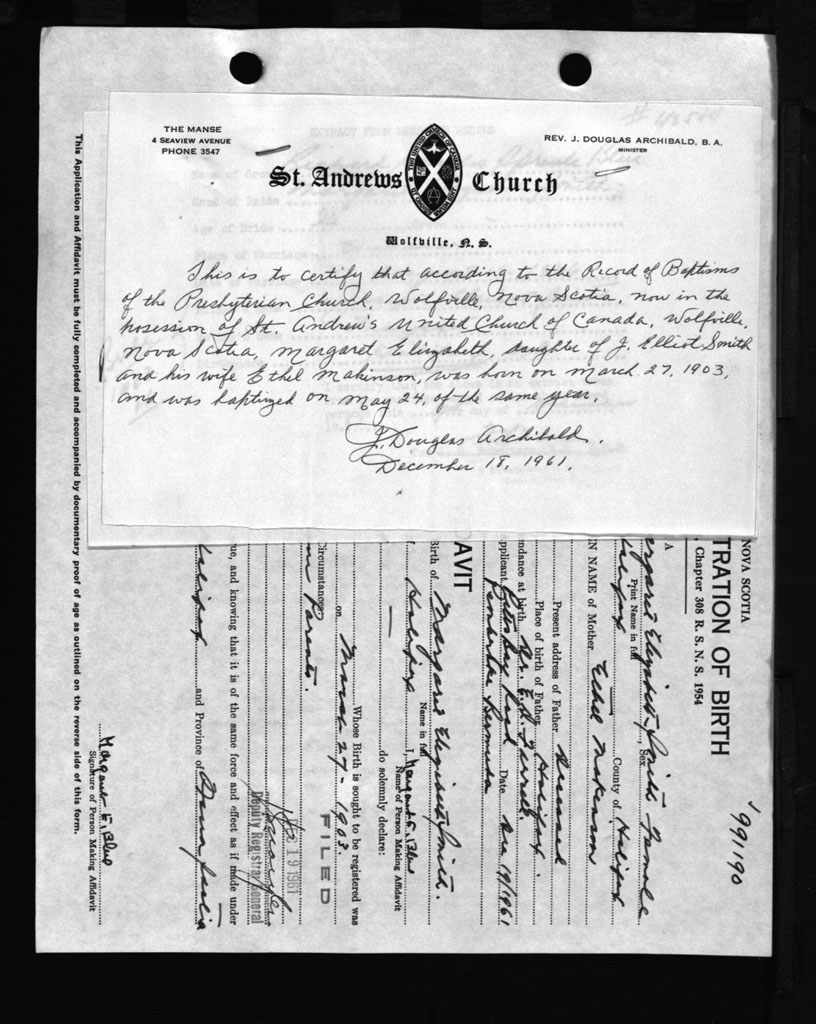 THE MANSE
4 SEAVIEW AVENUE
PHONE 3547
REV. J. DOUGLAS ARCHIBALD, B. A.
MINISTER
St. Andrews Church
Wolfville, N. S.
This is to certify that according to the Record of Baptisms
of the Presbyterian Church, Wolfville, Nova Scotia, now in the
possession of St. Andrew's United Church of Canada, Wolfville,
Nova Scotia, Margaret Elizabeth, daughter of J. Elliot Smith
and his wife Ethel Makinson, was born on March 27, 1903,
and was baptized on May 24, of the same year.
J. Douglas Archibald.
December 18, 1961.
991190
NOVA SCOTIA
TRATION OF BIRTH
Chapter 308 R. S. N. S. 1954
Margaret Elizabeth Smith Sex Female
Print Name in full
Halifax County of Halifax
N NAME of Mother Ethel Makinson
Present address of Father Deceased
Place of birth of Father Halifax
ndance at birth Dr. E. D. Farrell
pplicant Pitts Bay Road Date Dec 19/1961
Pembroke Bermuda
AVIT
Birth of Margaret Elizabeth Smith.
Name in full
Halifax I, Margaret E. Blue
Name of Person Making Affidavit
do solemnly declare:
Whose Birth is sought to be registered was
on March 27 - 1903.
FILED
Circumstances
Parents.
DEC 19 1961
Deputy Registrar General
ue, and knowing that it is of the same force and effect as if made under
Halifax and Province of Nova Scotia
Margaret E. Blue
Signature of Person Making Affidavit
This Application and Affidavit must be fully completed and accompanied by documentary proof of age as outlined on the reverse side of this form.